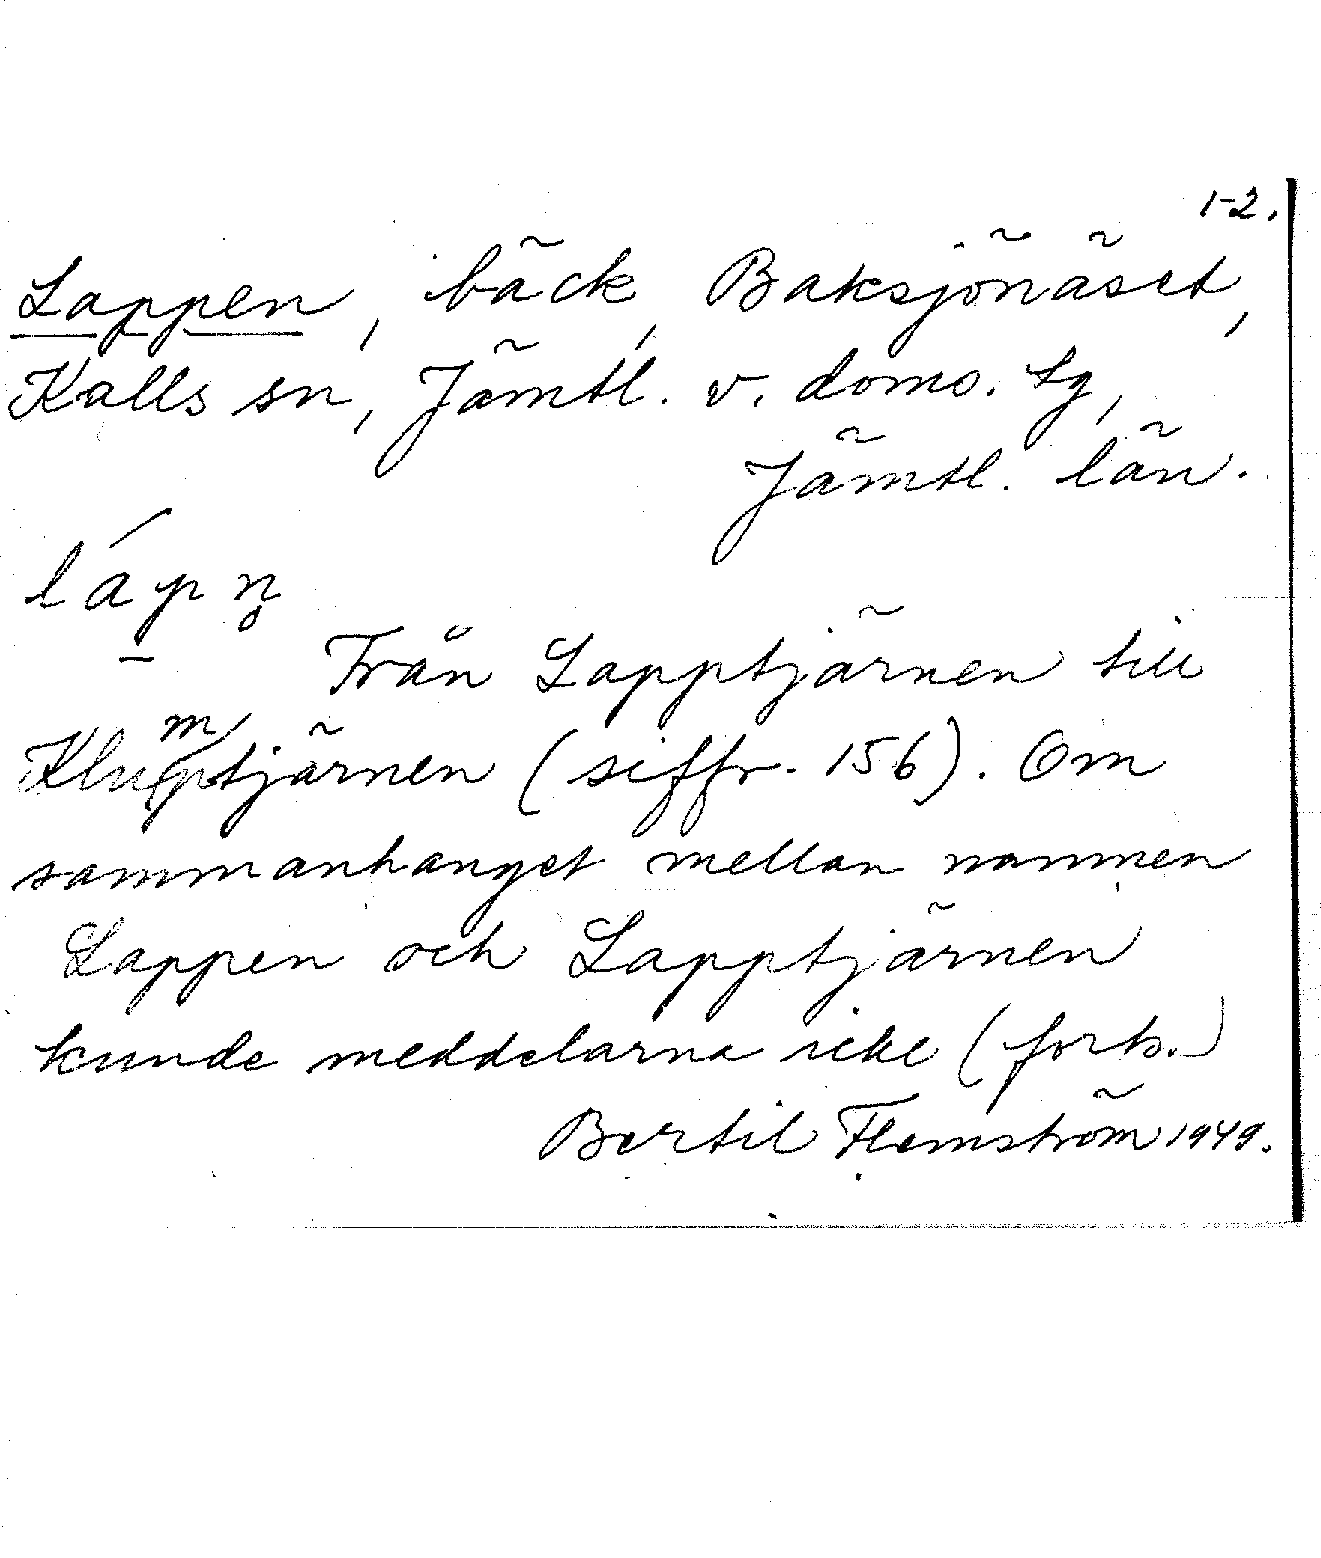 1-2.
Lappen, bäck, Baksjönäset,
Kalls sn, Jämtl. v. doms. tg,
Jämtl. län.
lápn̥
Från Lapptjärnen till
Klumptjärnen (siffr. 156). Om
sammanhanget mellan namnen
Lappen och Lapptjärnen
kunde meddelarna icke (forts.)
Bertil Flemström 1949.